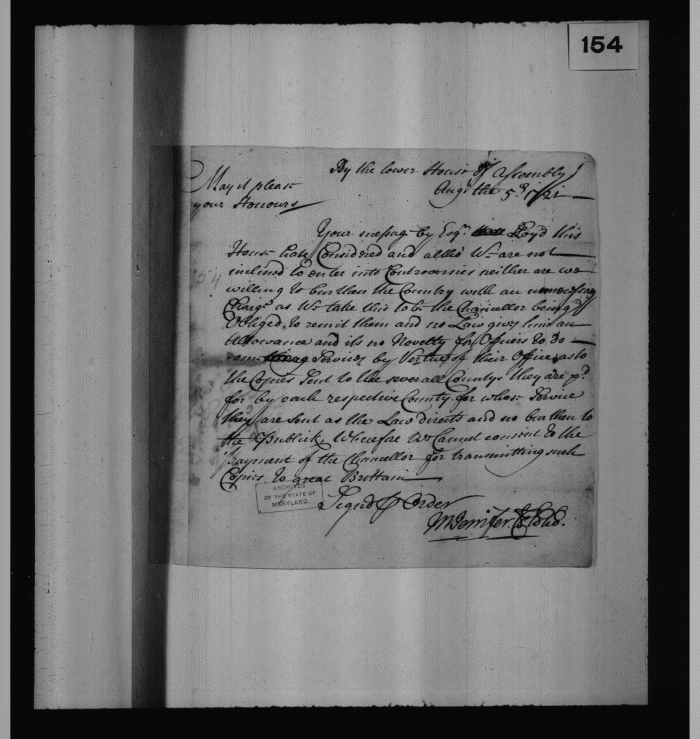 154
By the lower House of Assembly
Augt the 5th 1721
May it please
your Honours
Your message by Esqr Lloyd this
House hath Considered and altho We are not
inclined to enter into Controversies neither are we
willing to burthen the Country with an unnecessary
Charge as We take this to be the Chancellor being
Obliged to remit them and no Law gives him an
Allowance and its no Novelty for Officers to do
some Services by Vertue of their Offices as to
the Copies sent to the severall Countys they are pd
for by each respective County for whose Service
they are sent as the Law directs and no burthen to
the Publick, Wherefore We Cannot consent to the
payment of the Chancellor for transmitting such
Copies to great Brittain
Signed p Order
MJenifer Cl lo Ho.
ARCHIVES
OF THE STATE OF
MARYLAND